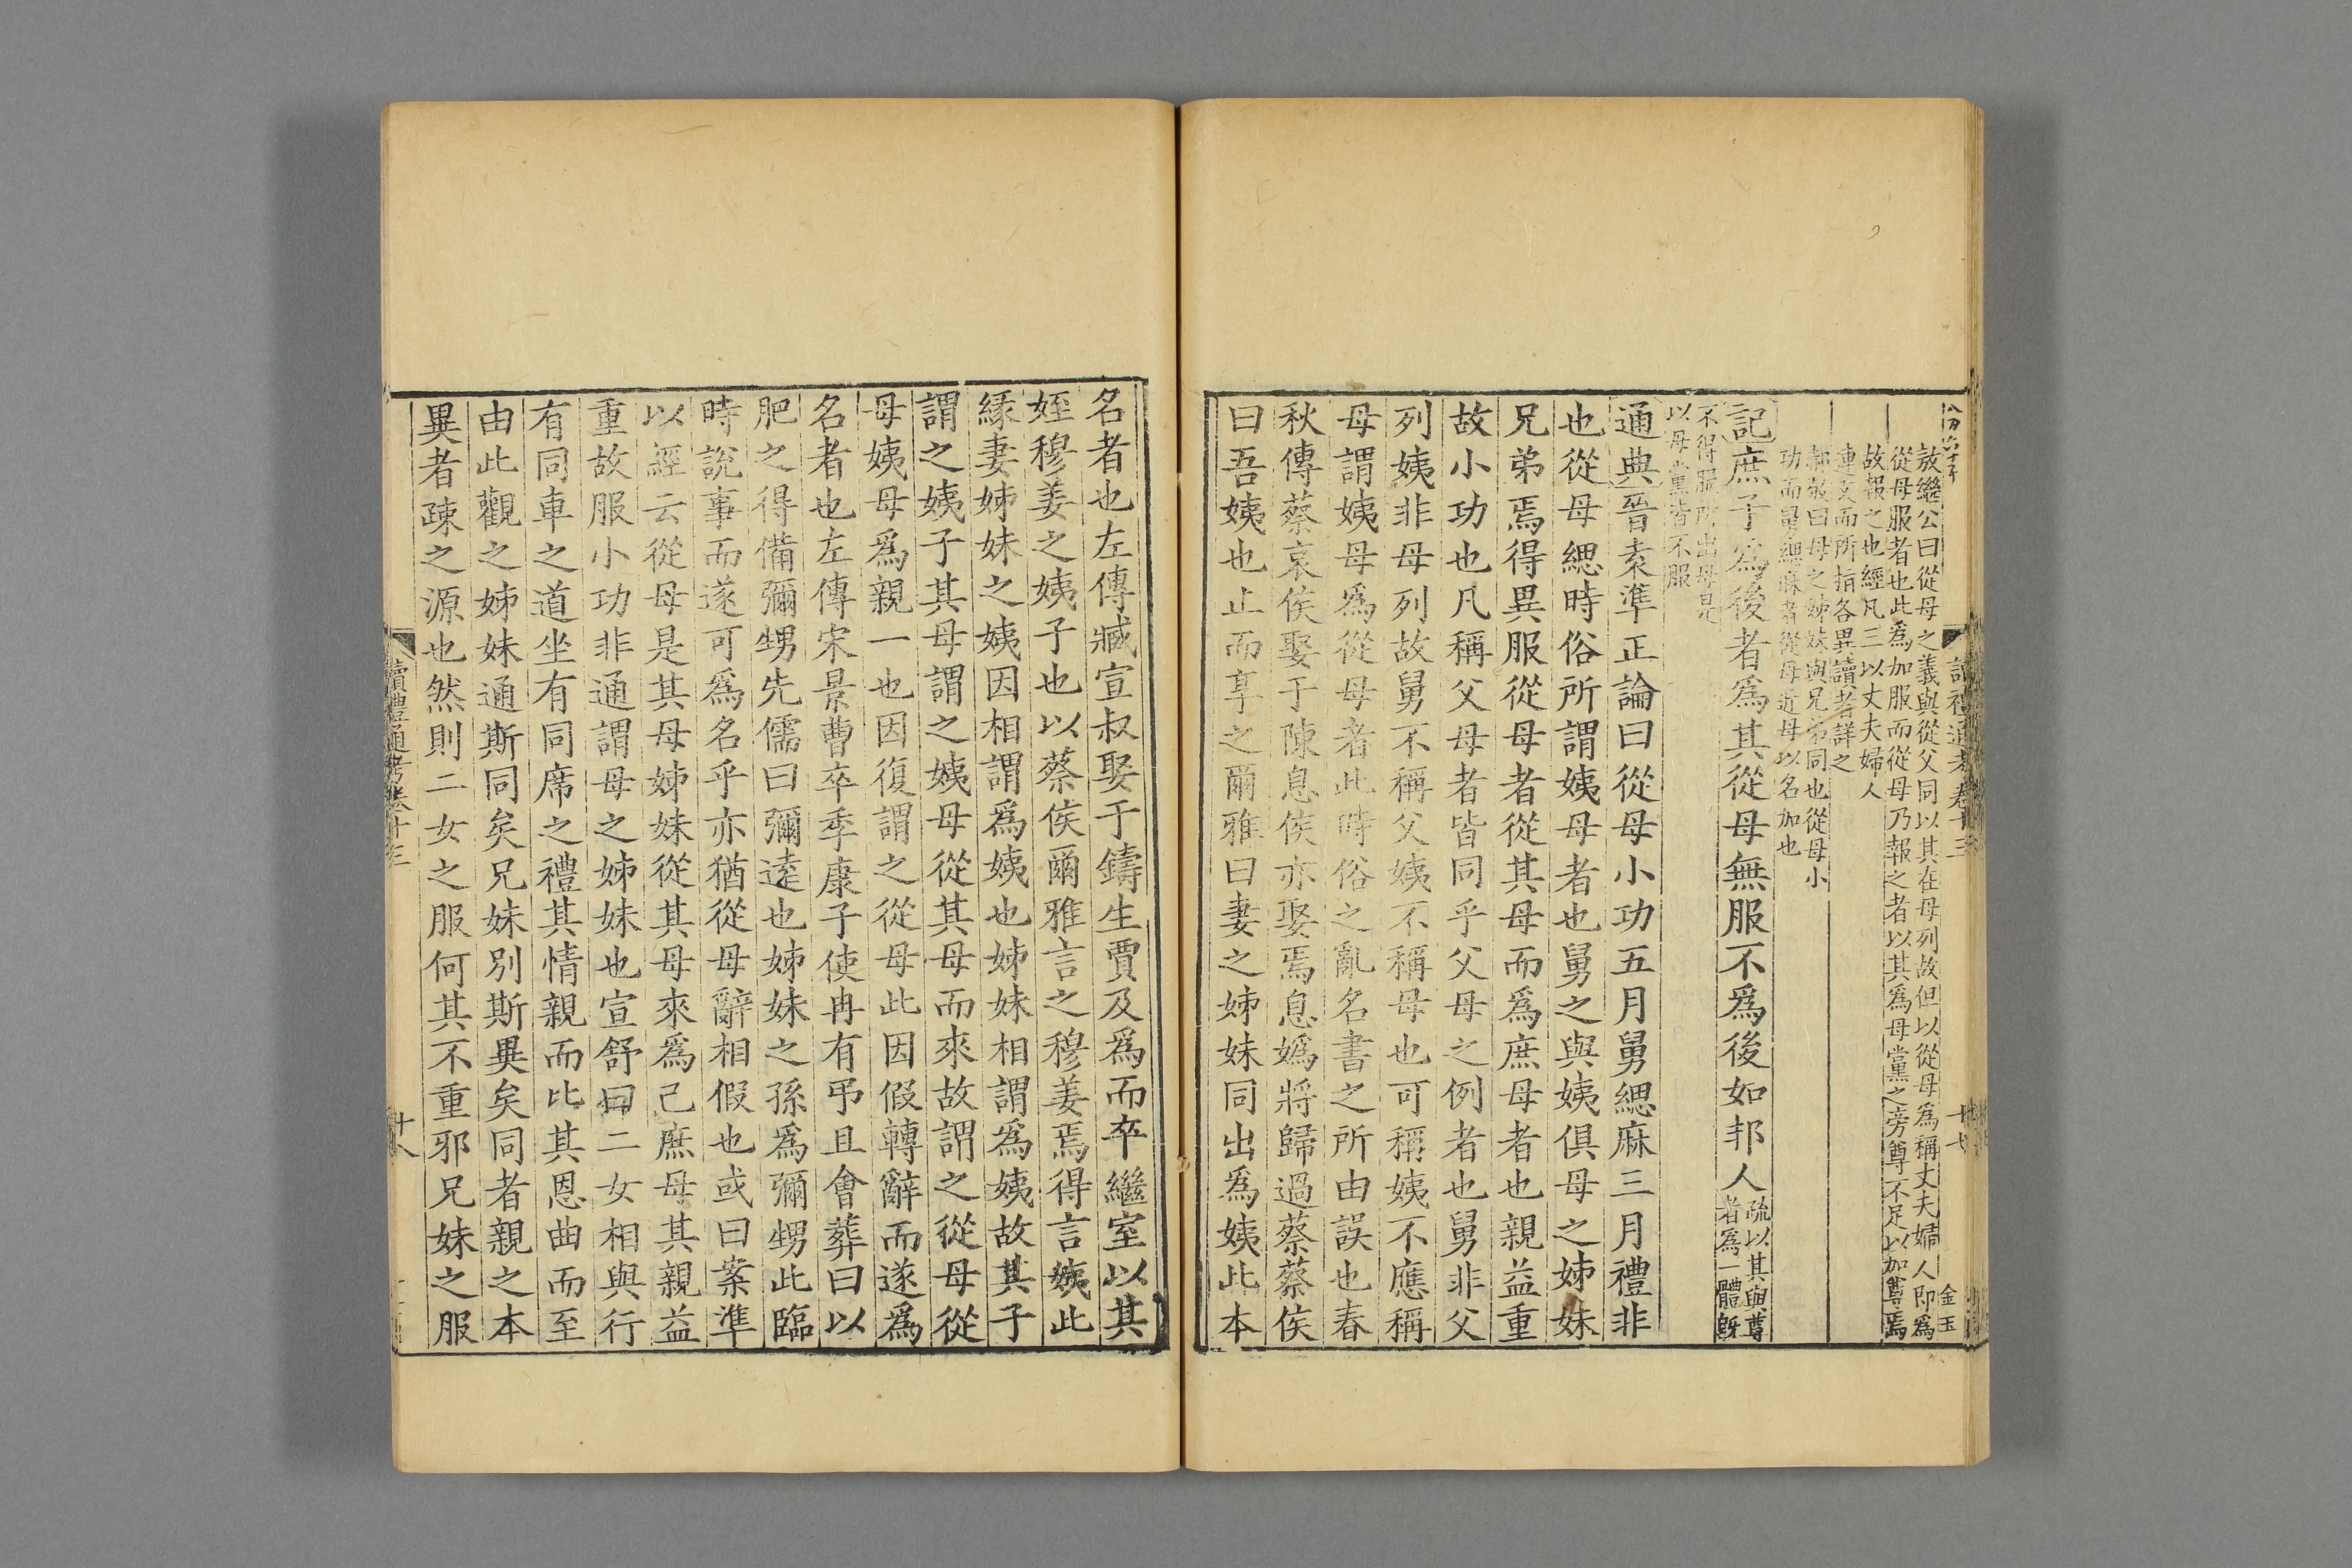 敖繼公曰從母之義與從父同以其在母列故但以從母爲稱丈夫婦人即爲
從母服者也此爲加服而從母乃報之者以其爲母黨之旁尊不足以加尊焉
故報之也經凡三以丈夫婦人
連文而所指各異讀者詳之
郝敬曰母之姊妹與兄弟同也從母小
功而舅緦麻者從母近母以名加也
記庶子爲後者爲其從母無服不爲後如邦人
疏以其與尊
者爲一體旣
不得服所出母是
以母黨皆不服
通典晉袁準正論曰從母小功五月舅緦麻三月禮非
也從母緦時俗所謂姨母者也舅之與姨俱母之姊妹
兄弟焉得異服從母者從其母而爲庶母者也親益重
故小功也凡稱父母者皆同乎父母之例者也舅非父
列姨非母列故舅不稱父姨不稱母也可稱姨不應稱
母謂姨母爲從母者此時俗之亂名書之所由誤也春
秋傳蔡哀侯娶于陳息侯亦娶焉息嬀將歸過蔡蔡侯
曰吾姨也止而享之爾雅曰妻之姊妹同出爲姨此本
名者也左傳臧宣叔娶于鑄生賈及爲而卒繼室以其
姪穆姜之姨子也以蔡侯爾雅言之穆姜焉得言姨此
緣妻姊妹之姨因相謂爲姨也姊妹相謂爲姨故其子
謂之姨子其母謂之姨母從其母而來故謂之從母從
母姨母爲親一也因復謂之從母此因假轉辭而遂爲
名者也左傳宋景曹卒季康子使冉有弔且會葬曰以
肥之得備彌甥先儒曰彌逺也姊妹之孫爲彌甥此臨
時說事而遂可爲名乎亦猶從母辭相假也或曰案準
以經云從母是其母姊妹從其母來爲己庶母其親益
重故服小功非通謂母之姊妹也宣舒曰二女相與行
有同車之道坐有同席之禮其情親而比其恩曲而至
由此觀之姊妹通斯同矣兄妹別斯異矣同者親之本
異者疎之源也然則二女之服何其不重邪兄妹之服
讀禮通考卷十三
十八